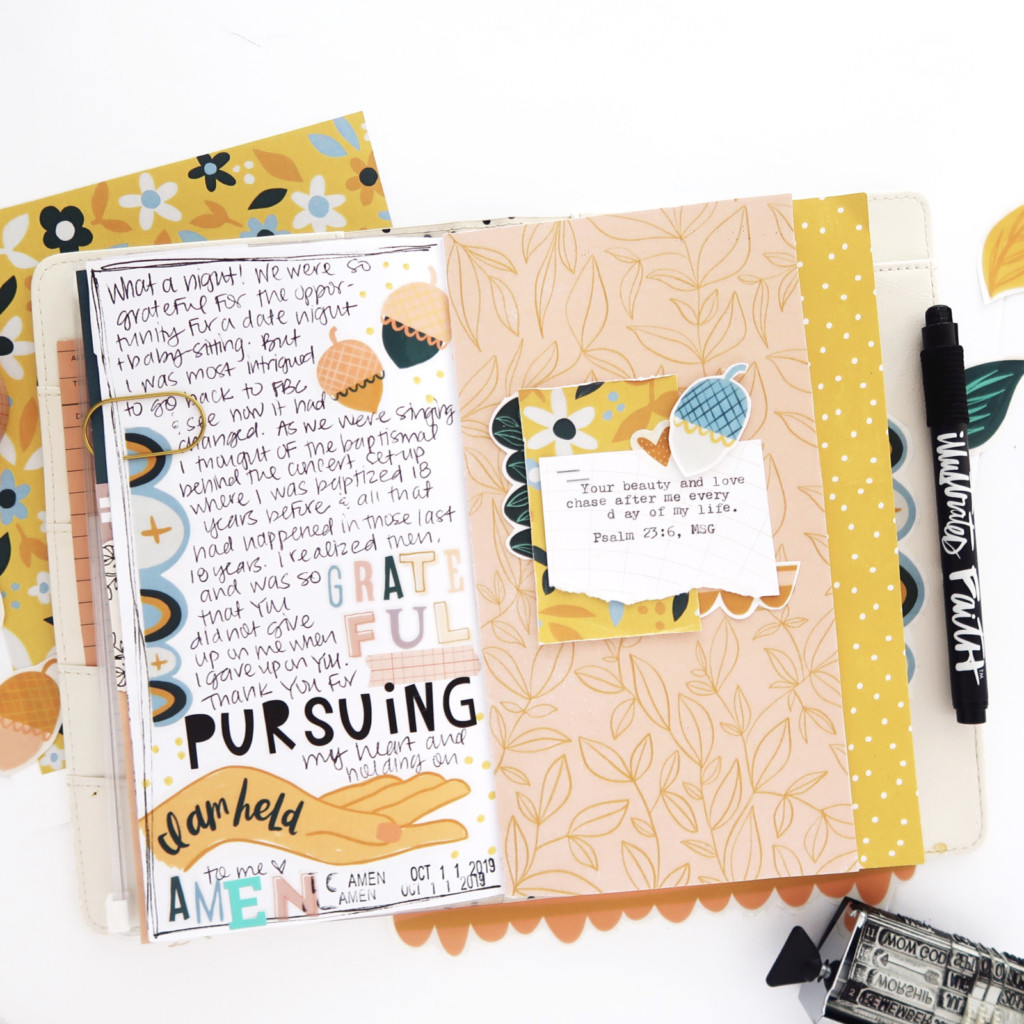 What a night! We were so
grateful for the oppor-
tunity for a date night
+ baby-sitting. But
I was most intrigued
to go back to FBC
& see now it had
changed. As we were singing
I thought of the baptismal
behind the concert set up
where I was baptized 18
years before & all that
had happened in those last
18 years. I realized then,
and was so
GRATE
FUL
that YOU
did not give
up on me when
I gave up on YOU.
THANK YOU for
PURSUING
my heart and
holding on
I am held
to me
AMEN
AMEN OCT 1 1 2019
AMEN OCT 1 1 2019
Your beauty and love
chase after me every
d ay of my life.
Psalm 23:6, MSG
illustrated FAITH™
WOW GOD
WORSHIP
REMEMBER